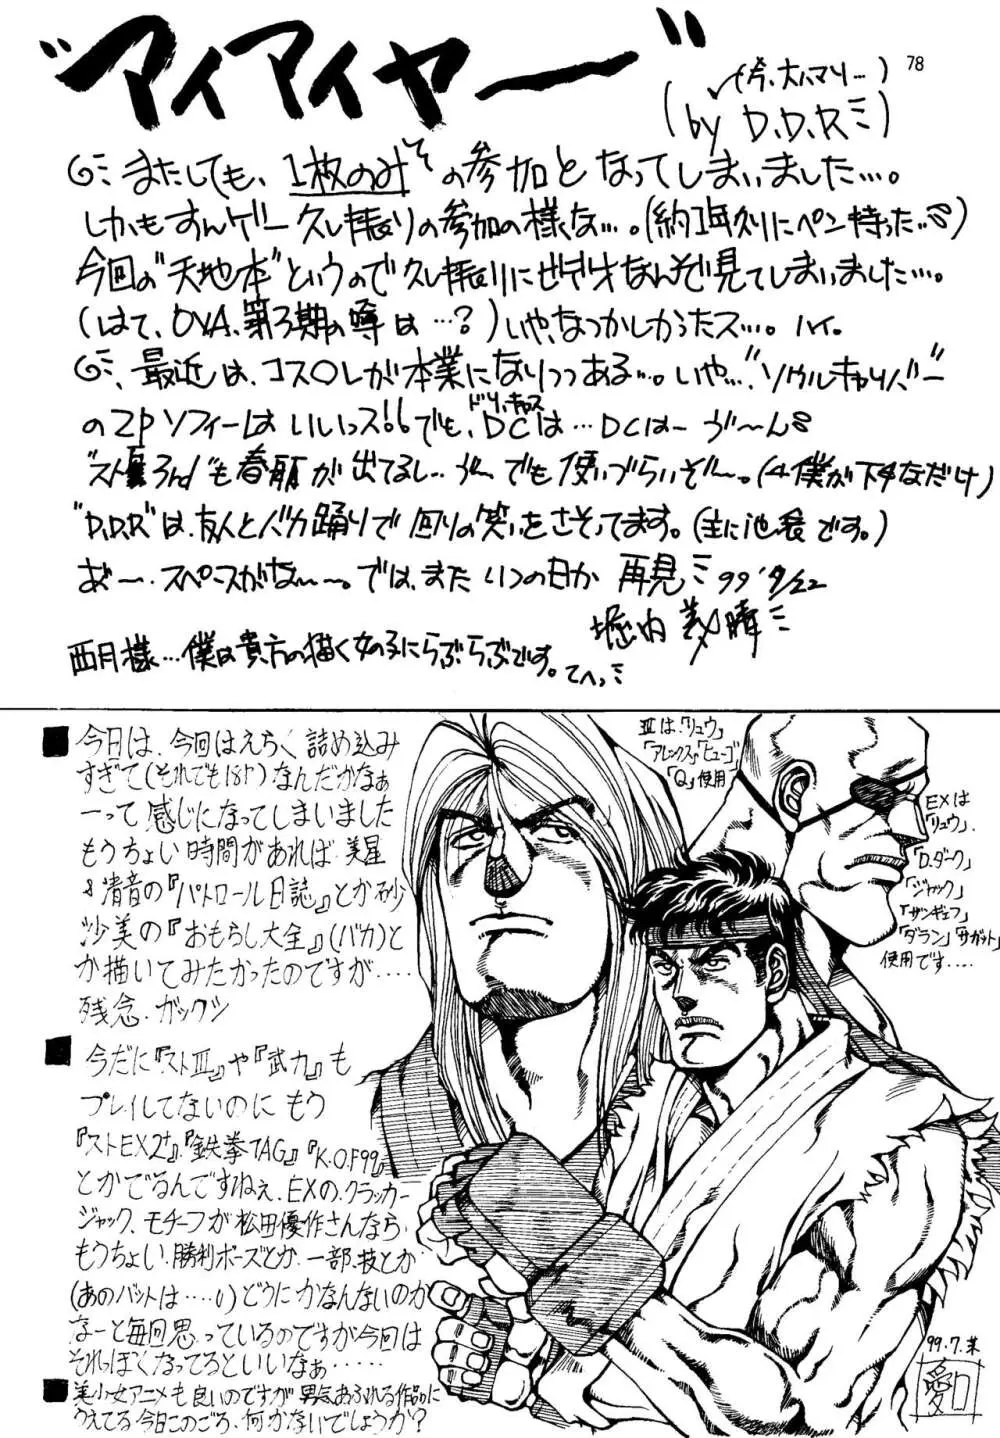 "アイアイヤー"
78
(今、大ハマリ…)
(by D.D.R ミ)
またしても、1枚のみの参加となってしまいました…。
しかもすんげー久し振りの参加の様な…。(約1年久りにペン持った…)
今回の"天地本"というので久し振りにビデオなんぞ見てしまいました…。
(はて、OVA、第3期の噂は…?)いや、なつかしかったス…。ハイ。
最近は、コス○レが本業になりつつある…。いや…"ソウルキャリバー"
の2Pソフィーはいいっス!!でも、DCは…DCはーがーん
ドリキャス
"スト 3rd"も春麗が出てるし…がー でも使いづらいぞー。(←僕が下手なだけ)
"D.D.R"は、友人とバカ踊りで回りの笑いをさそってます。(主に池袋です。)
あ゛ー、スペースがなーい。では、またいつの日か 再見ミ 99'8/22
堀内 美晴ミ
西月様…僕は貴方の描く女の子にらぶらぶです。てへっミ
■今日は、今回はえらく詰め込み
すぎて(それでも18P)なんだかなぁ
ーって感じになってしまいました
もうちょい時間があれば、美星
&清音の『パトロール日誌』とか砂
沙美の『おもらし大全』(バカ)と
か描いてみたかったのですが‥‥
残念.ガックシ
■今だに『ストⅢ』や『武力』も
プレイしてないのにもう
『ストEX2+』『鉄拳TAG』『K.O.F99』
とかでるんですねぇ、EXの、クラッカー
ジャック、モチーフが松田優作さんなら
もうちょい、勝利ポーズとか、一部、技とか
(あのバットは‥‥い)どうにかなんないのか
なーと毎回思っているのですが今回は
それっぽくなってるといいなぁ‥‥‥
■美少女アニメも良いのですが男気あふれる作品に
うえてる今日このごろ、何かないでしょうか?
Ⅲは、「リュウ」
「アレックス」「ヒューゴ」
「Q」使用
EXは
「リュウ」.
「D.ダーク」
「ジャック」
「ザンギェフ」
「ダラン」「サガット」
使用です‥‥
99.7.末